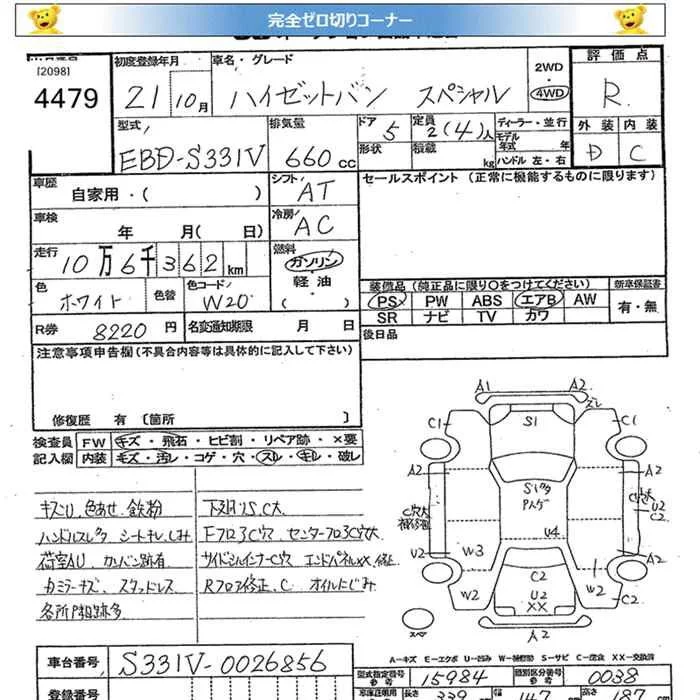 完全ゼロ切りコーナー
[2098]
4479
初度登録年月
21 10月
車名・グレード
ハイゼットバン スペシャル
2WD
4WD
評価点
R
型式
EBD-S331V
排気量
660cc
ドア
5
形状
定員
2(4)人
積載
kg
ディーラー・並行
モデル
年式 年
ハンドル 左・右
外装 内装
D C
車歴
自家用・( )
シフト
AT
セールスポイント (正常に機能するものに限ります)
車検
年 月( 日)
冷房
AC
走行
10万6千362km
燃料
ガソリン・
軽油・
( )
色
ホワイト
色替
色コード
W20
装備品 (純正品に限り○をつけてください)
新車保証書
PS PW ABS エアB AW
SR ナビ TV カワ
有・無
R券 8220円
名変通知期限 月 日
後日品
注意事項申告欄(不具合内容等は具体的に記入して下さい)
修復歴 有 [箇所 ]
検査員
記入欄
FW キズ・飛石・ヒビ割・リペア跡・×要
内装 キズ・汚レ・コゲ・穴・スレ・キレ・破レ
キズU、色あせ、鉄粉
ハンドルスレタ シートキレ、しみ
荷室AU、カンバン跡有
カミラーキズ、スタッドレス
各所P粗跡多
下廻りS、C大
Fフロア C穴、センターフロアC穴大
サイドシルインナーC穴 エンドパネルXX、修正
Rフロア修正、C オイルにじみ
A1 A2
ズレ
C1 S1 C1
A2 A2
C穴大
U2
C2
U2 W3 U4 A2
W2 C2 W2 C2
U2
XX
A2
スペア
A－キズ E－エクボ U－凹み W－補修跡 S－サビ C－腐食 XX－交換済
車台番号
S331V-0026856
型式指定番号
参考
15984
類別区分番号
参考
0038
登録番号
長さ
339
幅
147
高さ
187
cm